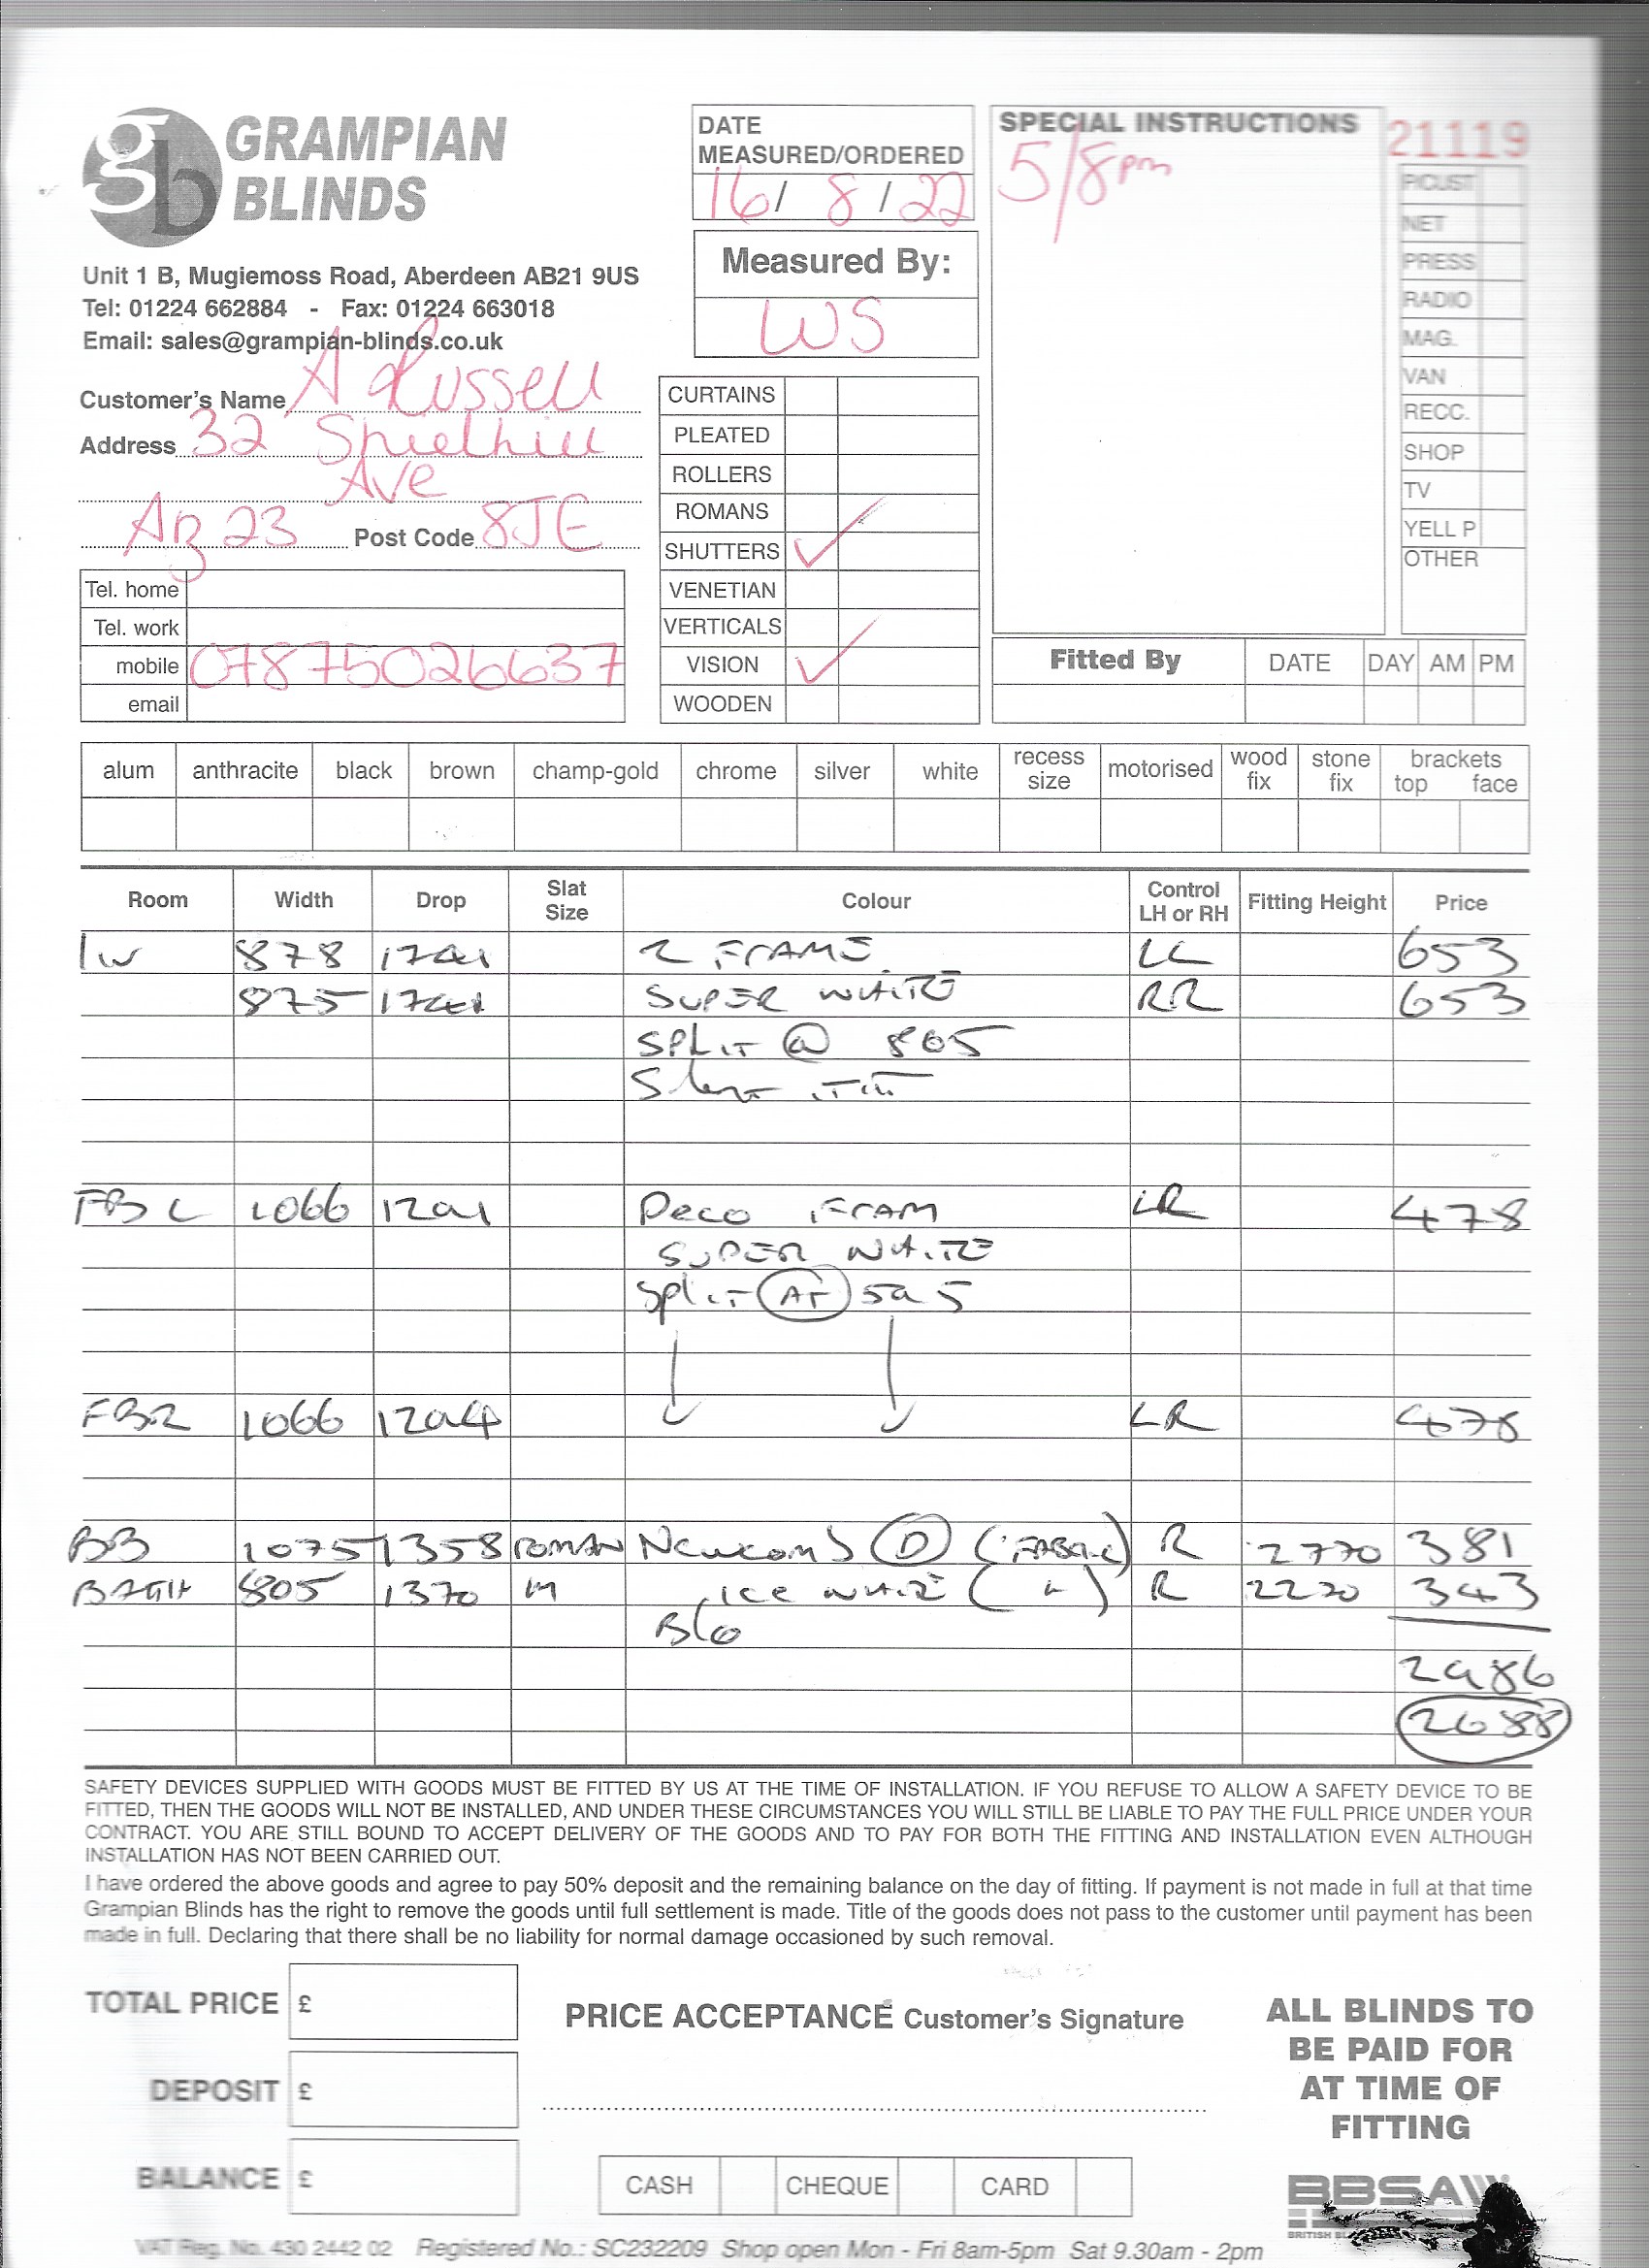 GRAMPIAN
BLINDS
Unit 1 B, Mugiemoss Road, Aberdeen AB21 9US
Tel: 01224 662884 - Fax: 01224 663018
Email: sales@grampian-blinds.co.uk
DATE
MEASURED/ORDERED
16/ 8 / 22
Measured By:
WS
SPECIAL INSTRUCTIONS
5/8pm
21119
P/CUST
NET
PRESS
RADIO
MAG.
VAN
RECC.
SHOP
TV
YELL P
OTHER
Customer's Name A Russell
Address 32
Ave
AB 23 Post Code 8JE
Tel. home
Tel. work
mobile 07875026637
email
CURTAINS
PLEATED
ROLLERS
ROMANS
SHUTTERS ✓
VENETIAN
VERTICALS
VISION ✓
WOODEN
Fitted By DATE DAY AM PM
alum anthracite black brown champ-gold chrome silver white recess size motorised wood fix stone fix brackets top face
Room Width Drop Slat Size Colour Control LH or RH Fitting Height Price
878 FRAME LL 653
875 SUPER WHITE RR 653
SPLIT @ 805
FBL 1066 1291 Deco FRAM LR 478
SUPER WHITE
Split AT 595
FBR 1066 1294 LR 478
BB 1075 1358 ROMAN D (FABRIC) R 2770 381
BATH 805 1370 ICE WHITE R 2220 343
B/O
2986
2688
SAFETY DEVICES SUPPLIED WITH GOODS MUST BE FITTED BY US AT THE TIME OF INSTALLATION. IF YOU REFUSE TO ALLOW A SAFETY DEVICE TO BE
FITTED, THEN THE GOODS WILL NOT BE INSTALLED, AND UNDER THESE CIRCUMSTANCES YOU WILL STILL BE LIABLE TO PAY THE FULL PRICE UNDER YOUR
CONTRACT. YOU ARE STILL BOUND TO ACCEPT DELIVERY OF THE GOODS AND TO PAY FOR BOTH THE FITTING AND INSTALLATION EVEN ALTHOUGH
INSTALLATION HAS NOT BEEN CARRIED OUT.
I have ordered the above goods and agree to pay 50% deposit and the remaining balance on the day of fitting. If payment is not made in full at that time
Grampian Blinds has the right to remove the goods until full settlement is made. Title of the goods does not pass to the customer until payment has been
made in full. Declaring that there shall be no liability for normal damage occasioned by such removal.
TOTAL PRICE £
DEPOSIT £
BALANCE £
PRICE ACCEPTANCE Customer's Signature
CASH CHEQUE CARD
ALL BLINDS TO
BE PAID FOR
AT TIME OF
FITTING
BBSA
BRITISH
VAT Reg. No. 430 2442 02 Registered No.: SC232209 Shop open Mon - Fri 8am-5pm Sat 9.30am - 2pm